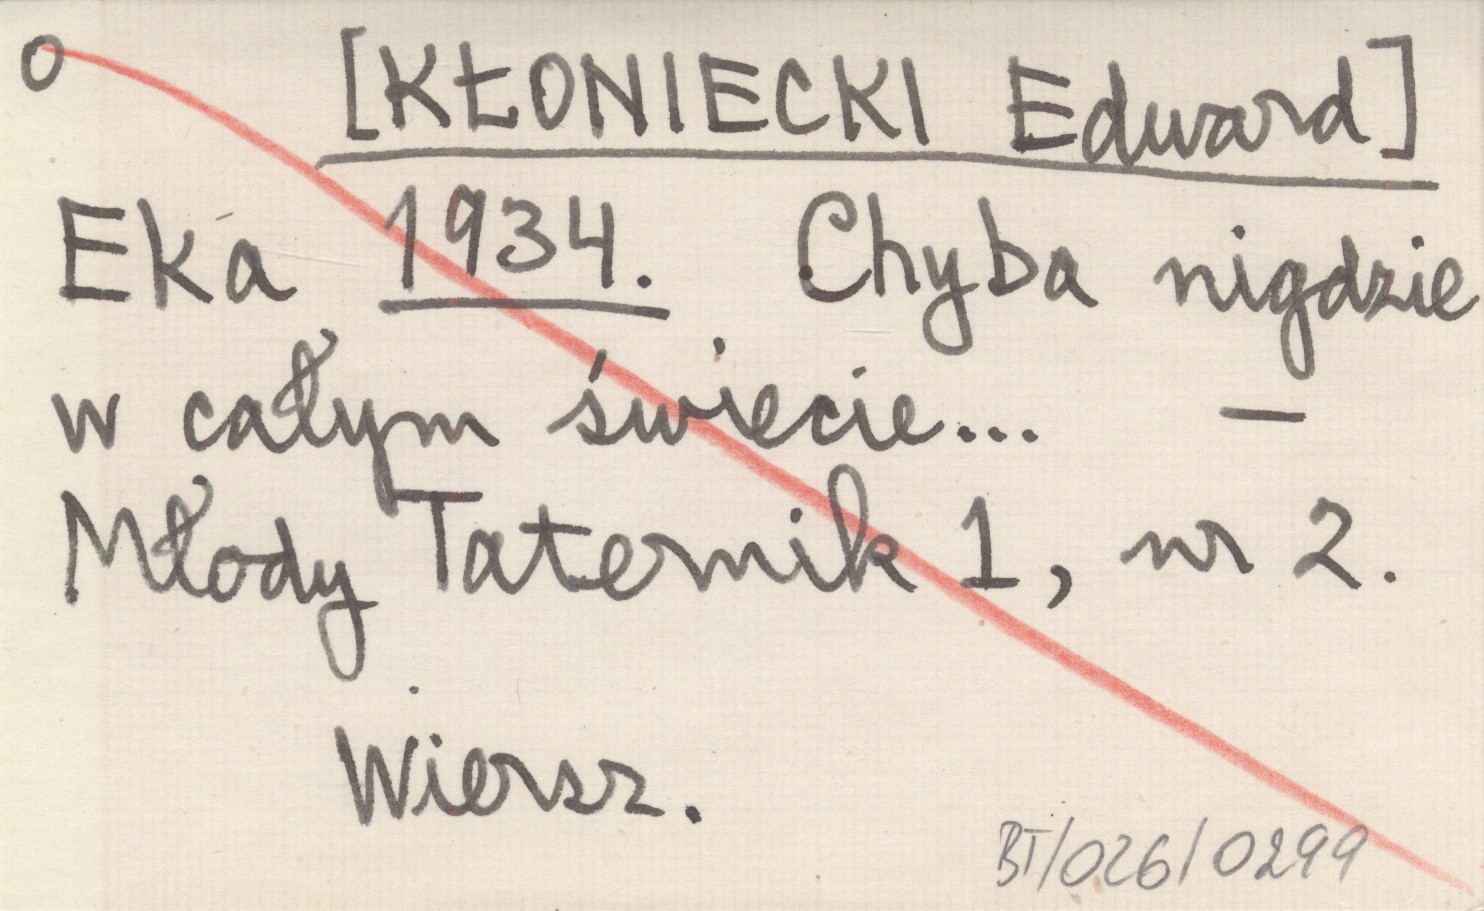 o [KŁONIECKI Edward]
Eka 1934. Chyba nigdzie
w całym świecie... —
Młody Taternik 1, nr 2.
Wiersz.
BT/026/0299